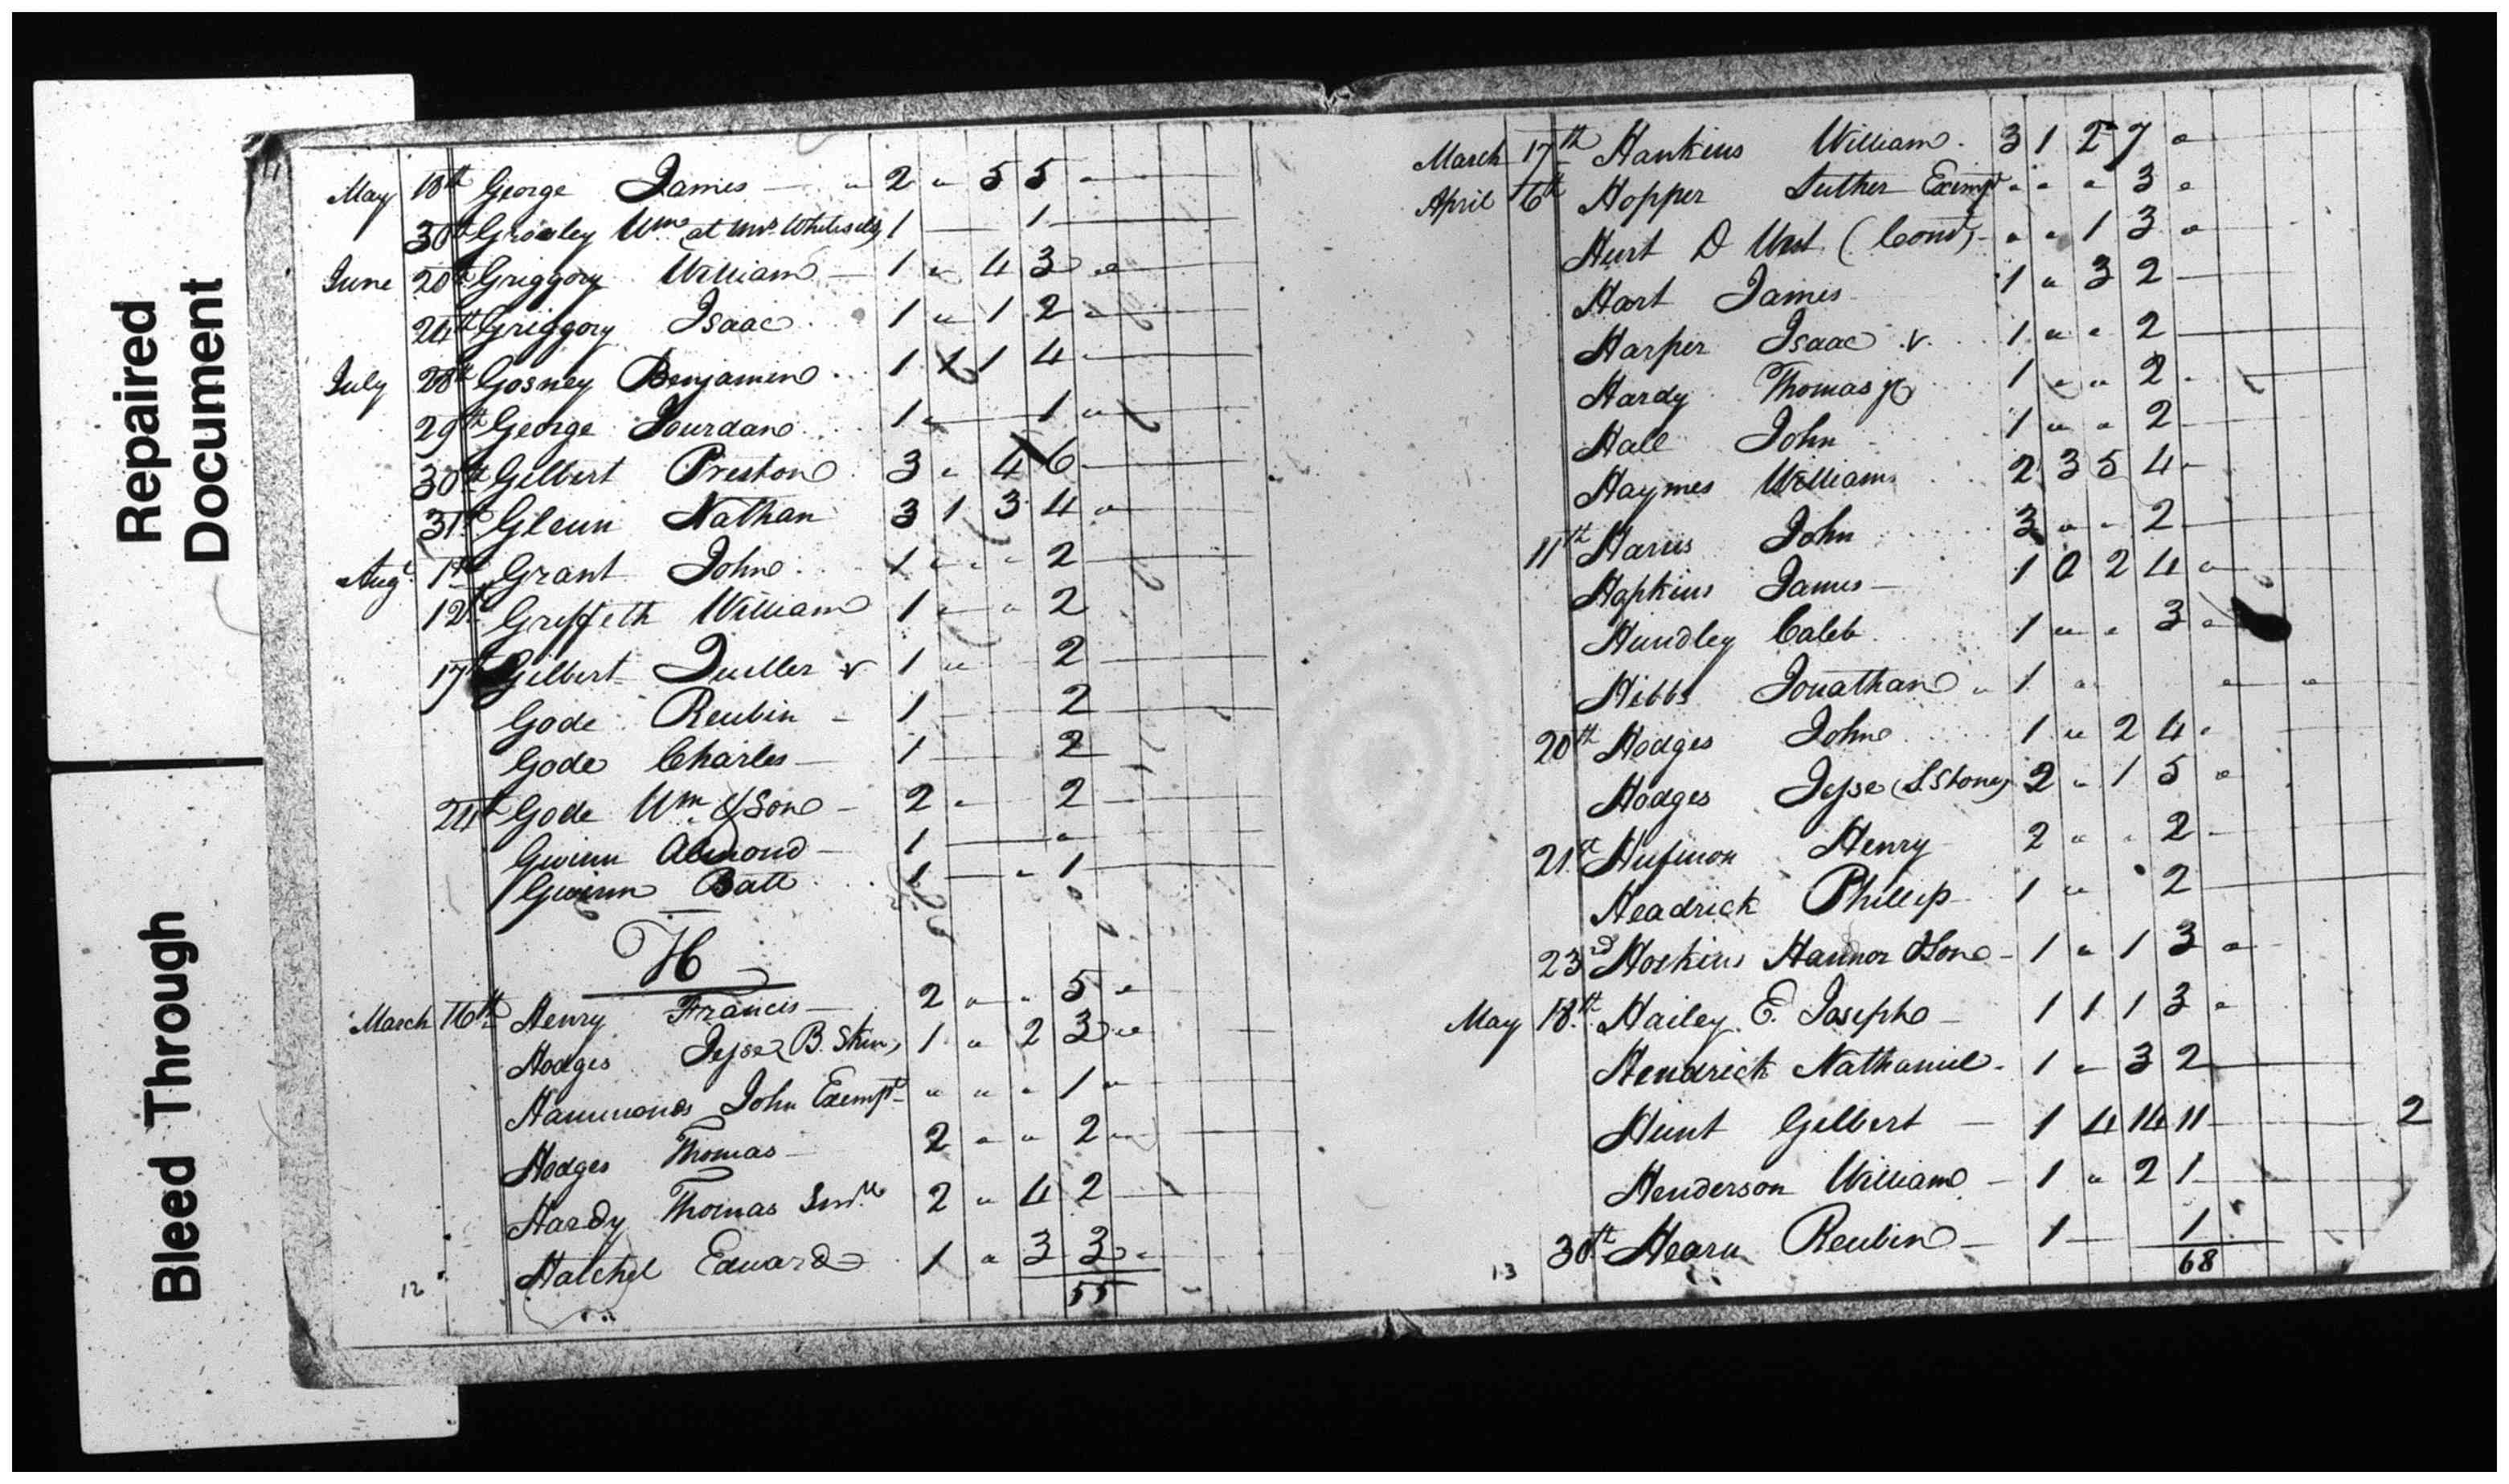 Repaired
Document
Bleed Through
11
May 18th George James - " 2 " 5 5 "
30th Wm (at Mrs. 1 — 1
June 20th Griggory William - 1 " 4 3 "
24th Griggory Isaac 1 " 1 2 "
July 28th Gosney Benjamin 1 1 1 4
29th George Jourdan 1 " 1 "
30th Gilbert Preston 3 " 4 6
31st Glenn Nathan 3 1 3 4 "
Augt. 1st Grant John 1 " " 2
12th Griffeth William 1 " " 2
17th Gilbert v 1 " 2
Gode Reubin - 1 2
Gode Charles - 1 2
24th Gode Wm. & Son - 2 " 2
Gwinn Almond - 1 "
Gwinn Batt 1 " 1
H
March 16th Henry Francis - 2 " " 5 "
Hodges Jesse (B. Skin) 1 " 2 3 "
Hammonds John Exempt " " " 1 "
Hodges Thomas - 2 " " 2 "
Hardy Thomas Senr. 2 " 4 2
Hatchel Edward 1 " 3 3 "
55
12
March 17th Hankins William 3 1 2 7 "
April 6th Hopper Luther Exempt " " " 3 "
Hurt D (Cont) - " " 1 3 "
Hart James 1 " 3 2
Harper Isaac v 1 " " 2
Hardy Thomas jr 1 " " 2
Hall John 1 " " 2
Haymes William 2 3 5 4
11th Harris John 3 " " 2
Hopkins James - 1 0 2 4 "
Hundley Caleb 1 " " 3 "
Hibbs Jonathan " 1 " " "
20th Hodges John 1 " 2 4 "
Hodges Jesse (S. Stone) 2 " 1 5 "
21st Hufmon Henry 2 " " 2
Headrick Phillip 1 " " 2
23rd Hoskins Hannor & Son - 1 " 1 3 "
May 18th Hailey E. Joseph - 1 1 1 3 "
Hendrick Nathaniel - 1 " 3 2
Hunt Gilbert - 1 4 14 11 2
Henderson William - 1 " 2 1
30th Hearn Reubin - 1 — 1
68
13